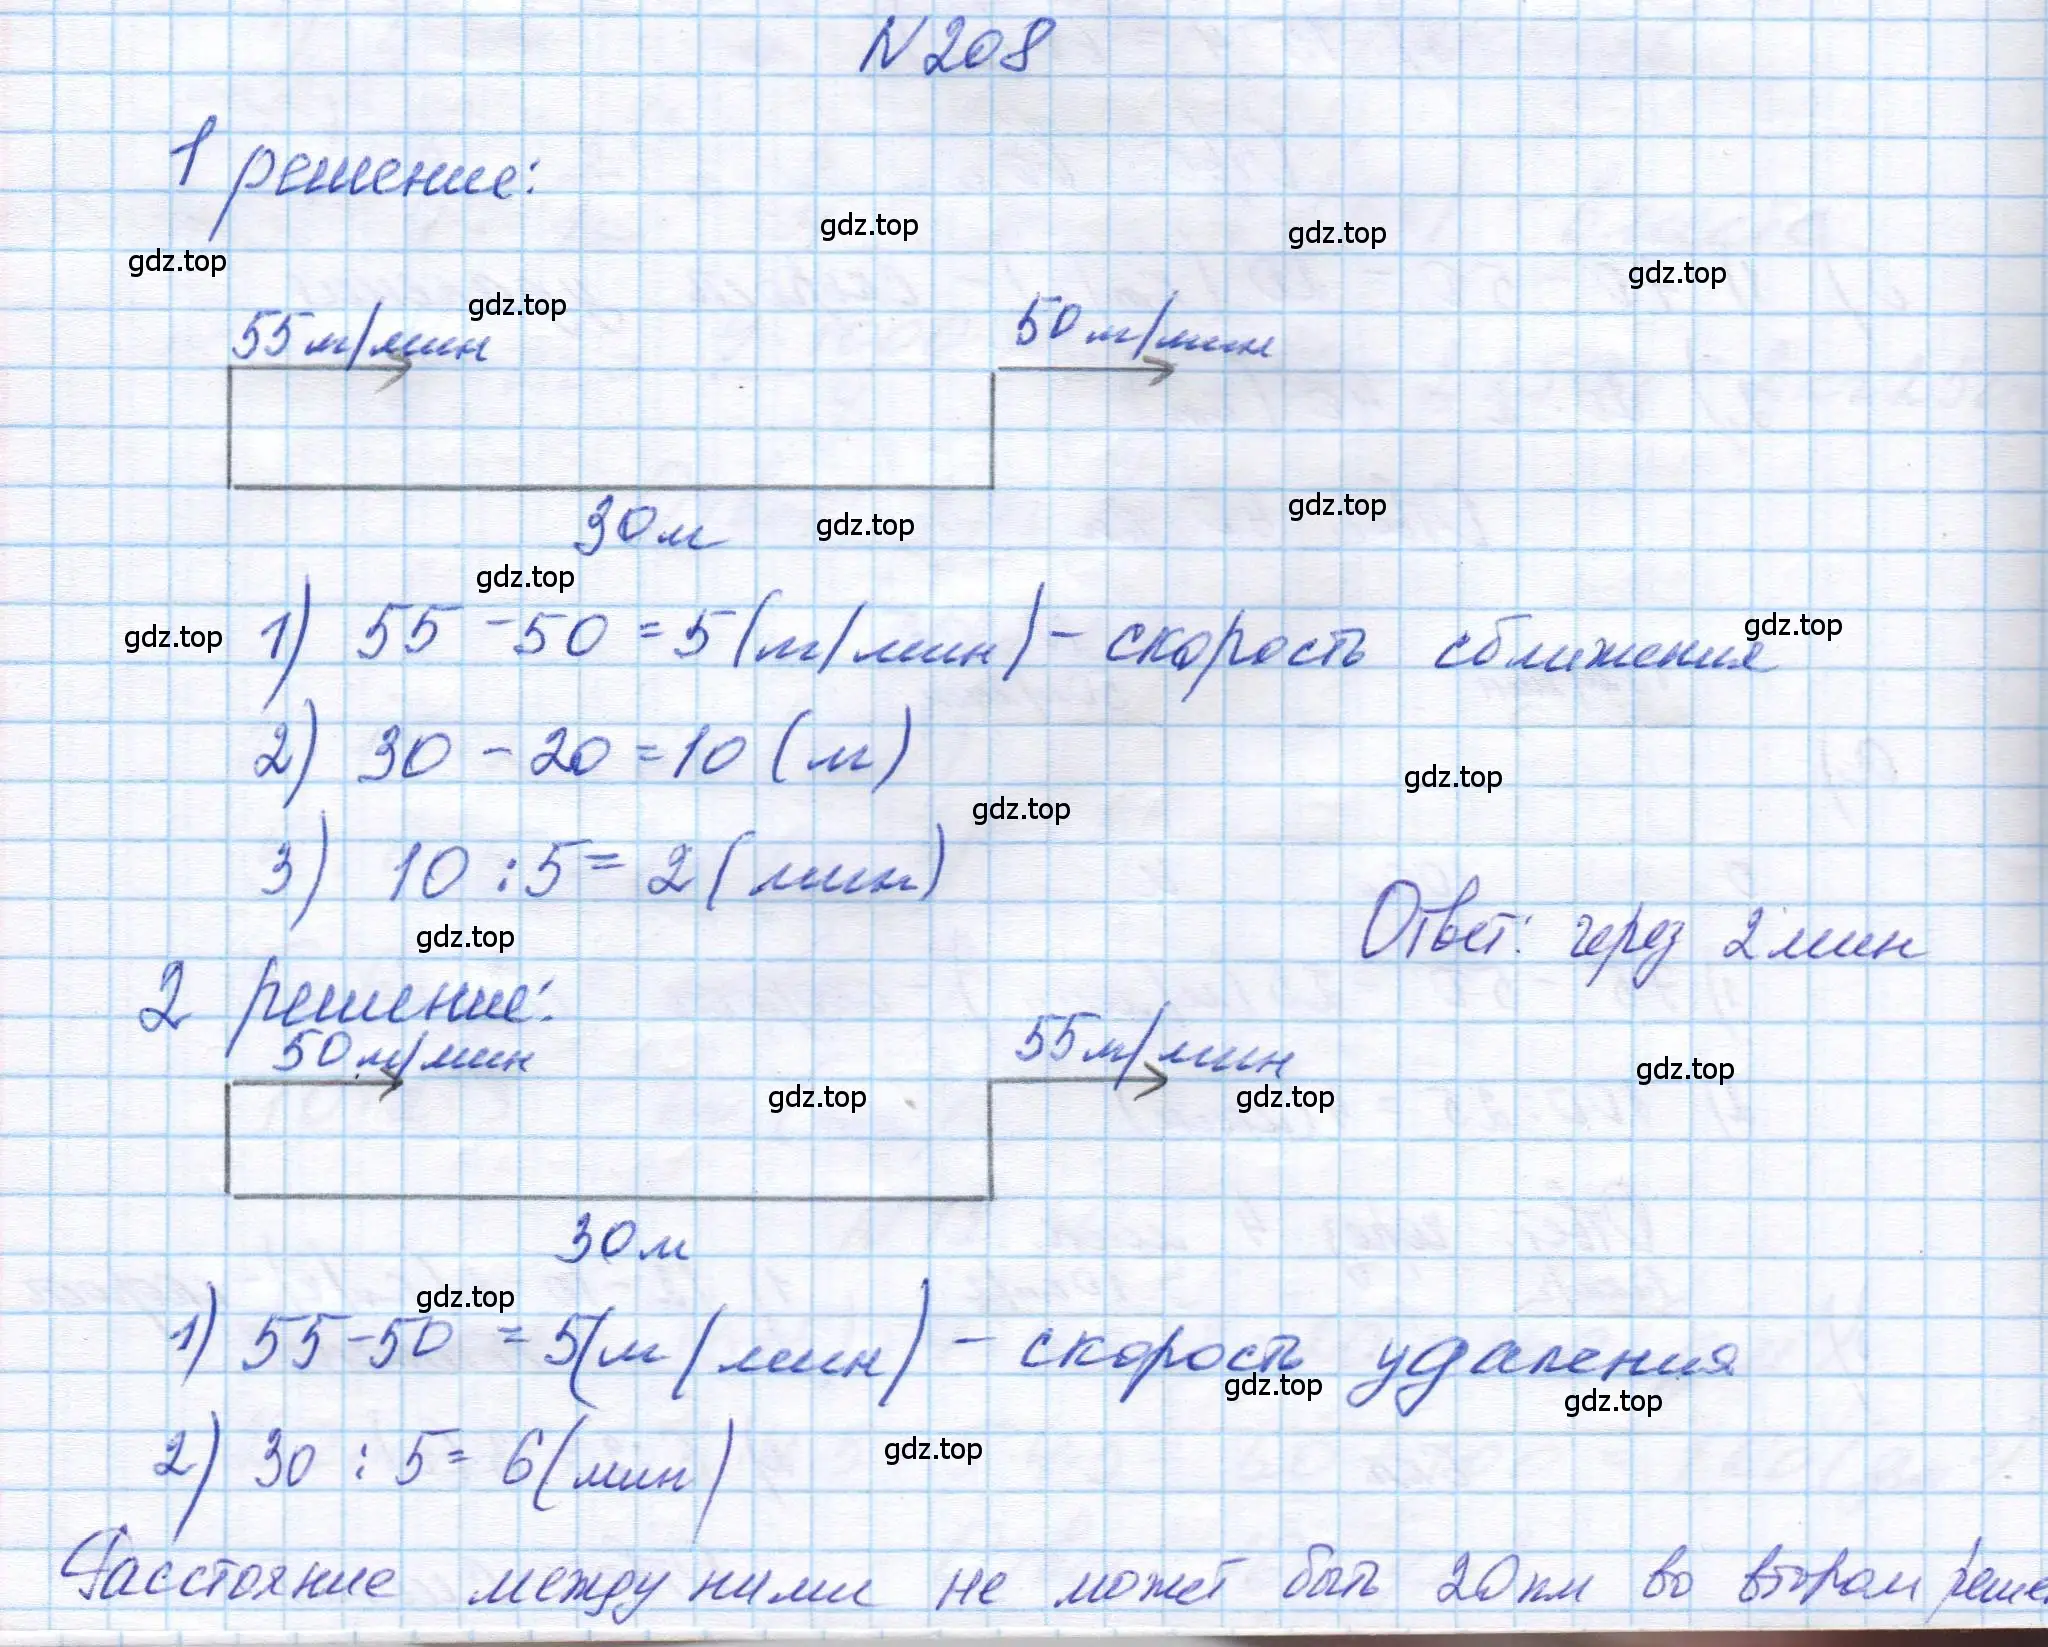 N 208
1 решение:
gdz.top gdz.top
gdz.top gdz.top
gdz.top
55м/мин 50м/мин
30м gdz.top gdz.top
gdz.top
gdz.top 1) 55 - 50 = 5 (м/мин) - скорость сближения gdz.top
2) 30 - 20 = 10 (м)
gdz.top
gdz.top
3) 10 : 5 = 2 (мин)
Ответ: через 2 мин
gdz.top
2 решение:
50м/мин 55м/мин
gdz.top gdz.top gdz.top
30м
gdz.top
1) 55 - 50 = 5 (м/мин) - скорость удаления
gdz.top gdz.top
2) 30 : 5 = 6 (мин) gdz.top
Расстояние между ними не может быть 20км во втором реше